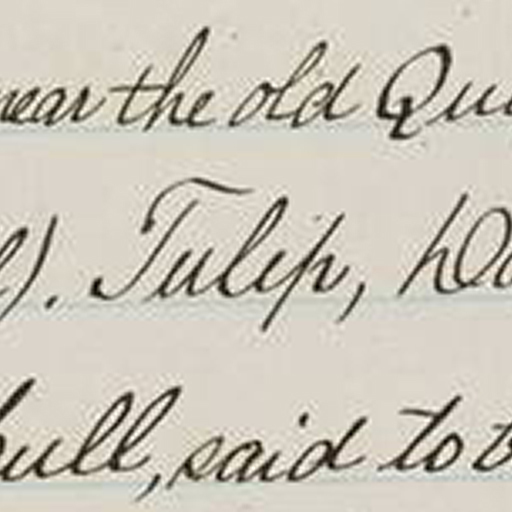 near the old Qu
). Tulip,
bull, said to